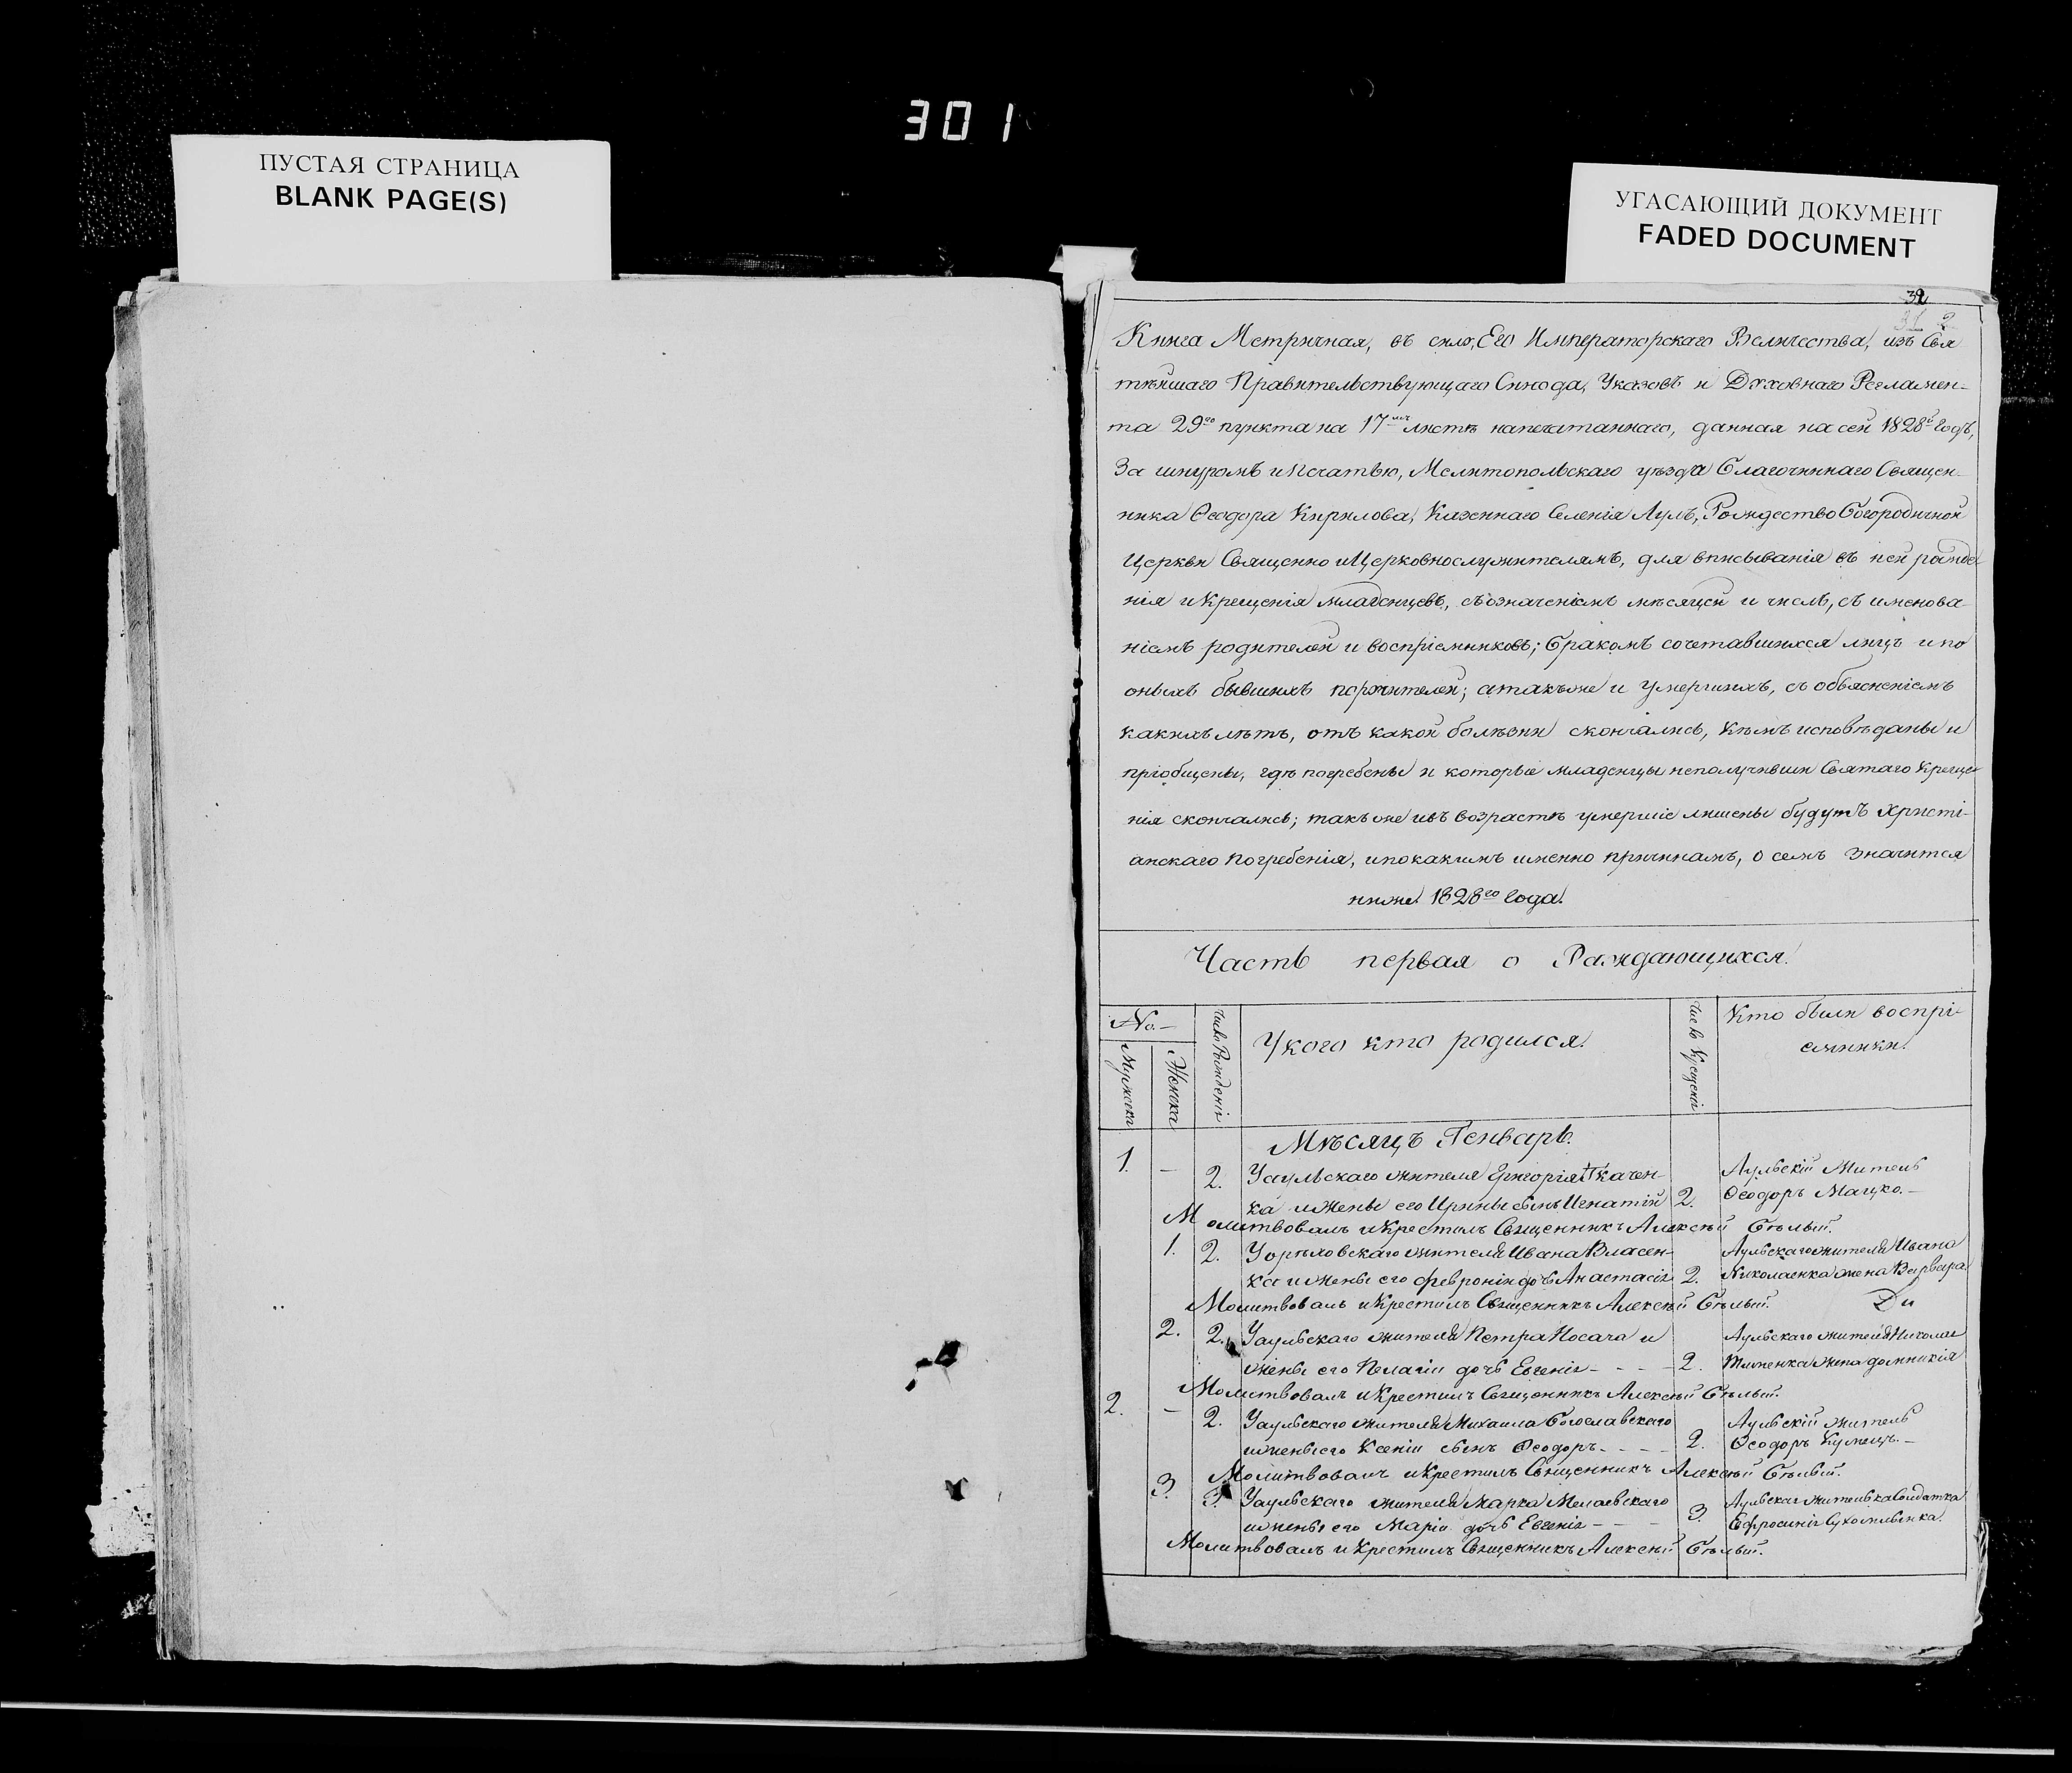 301
ПУСТАЯ СТРАНИЦА
BLANK PAGE(S)
УГАСАЮЩИЙ ДОКУМЕНТ
FADED DOCUMENT
Книга Метричная, въ силу, Его Императорскаго Величества, изъ Свя
тѣйшаго Правительствующаго Синода, Указовъ и Духовнаго Регламен-
та 29го пункта на 17мъ листѣ напечатаннаго, данная на сей 1828й Годъ,
За шнуромъ и Печатью, Мелитопольскаго уѣзда Благочиннаго Священ-
ника Ѳеодора Кирилова, Казеннаго Селенія Аулъ, Рождество Богородичной
Церкви Священно и Церковнослужителямъ, для вписыванія въ ней рожде
нія и Крещенія младенцевъ, съ означеніемъ мѣсяцей и числъ, съ именова
ніемъ родителей и воспріемниковъ; бракомъ сочетавшихся лицъ и по
оныхъ бывшихъ поручителей; а такъже и умершихъ, съ объясненіемъ
какихъ лѣтъ, отъ какой болѣзни скончались, Кѣмъ исповѣданы и
пріобщены, гдѣ погребены и которые младенцы неполучивши Святаго Креще
нія скончались; такъ же и въ возрастѣ умершіе лишены будутъ Христі-
анскаго Погребенія, и по какимъ именно причинамъ, о семъ значится
ниже 1828го Года.
Часть первая о Раждающихся.
No.
Мужеска
Женска
Число Рожденія
У кого кто родился.
Число Крещенія
Кто были воспрі-
емники.
Мѣсяцъ Генварь.
1. – 2. У аульскаго жителя Григорія Ткачен- Аульскій Житель
ка и Жены его Ирины сынъ Игнатій 2. Ѳеодоръ Мацко. –
Молитвовалъ и Крестилъ Священникъ Алексѣй Бѣлый.
1. 2. У орѣховскаго жителя Ивана Власен- Аульскаго жителя Ивана
ка и жены его Февроніи дочь Анастасія 2. Николаенка жена Варвара
Молитвовалъ и Крестилъ Священникъ Алексѣй Бѣлый.
2. 2. У аульскаго жителя Петра Носача и Аульскаго жителя Николая
жены его Пелагіи дочь Евгенія - - - - 2. жена домникія
Молитвовалъ и Крестилъ Священникъ Алексѣй Бѣлый.
2. – 2. У аульскаго жителя Михаила Богославскаго Аульскій житель
и жены его Ксеніи сынъ Ѳеодоръ - - - - 2. Ѳеодоръ –
Молитвовалъ и Крестилъ Священникъ Алексѣй Бѣлый.
3. 3. У аульскаго жителя Марка Аульская жителька Солдатка
и жены его Маріи дочь Евгенія - - - 3. Ефросинія
Молитвовалъ и Крестилъ Священникъ Алексѣй Бѣлый.